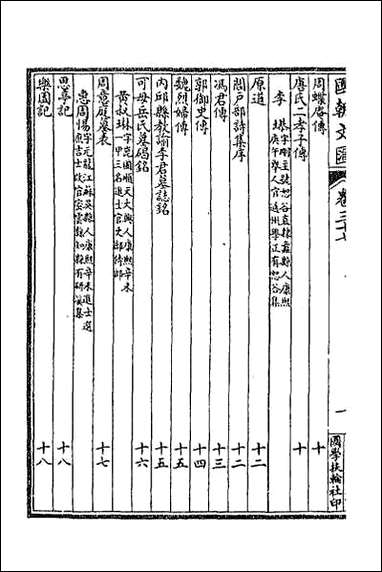 國朝文匯 卷三十七 一 國學扶輪社印
周蠖齋傳 十
唐氏二孝子傳 十
李塨 字剛主號恕谷直隸蠡縣人康熙庚午舉人官通州學正有恕谷集
原道 十二
閻戶部詩集序 十二
馮君傳 十三
郭御史傳 十四
魏烈婦傳 十五
內邱縣教諭李君墓誌銘 十五
可母岳氏墓碣銘 十六
黃叔琳 字崑圃順天大興人康熙辛未一甲三名進士官吏部侍郎
周意庭墓表 十七
惠周惕 字元龍江蘇吳縣人康熙辛未進士選庶吉士改官密雲縣知縣有研谿集
思善記 十八
樂圃記 十八